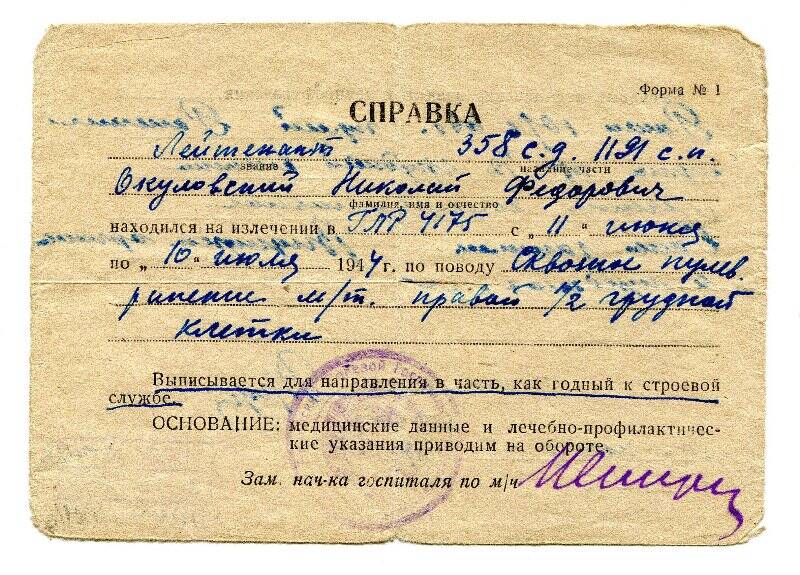 Форма № 1
СПРАВКА
Лейтенант 358 с.д. 1191 с.п.
звание название части
Окуловский Николай Федорович
фамилия, имя и отчество
находился на излечении в ГЛР 4175 с „11" июня
по „10" июля 1944 г. по поводу Сквозное пулев.
ранение м/т. правой 1/2 грудной
клетки
Выписывается для направления в часть, как годный к строевой
службе.
ОСНОВАНИЕ: медицинские данные и лечебно-профилактичес-
кие указания приводим на обороте.
Зам. нач-ка госпиталя по м/ч